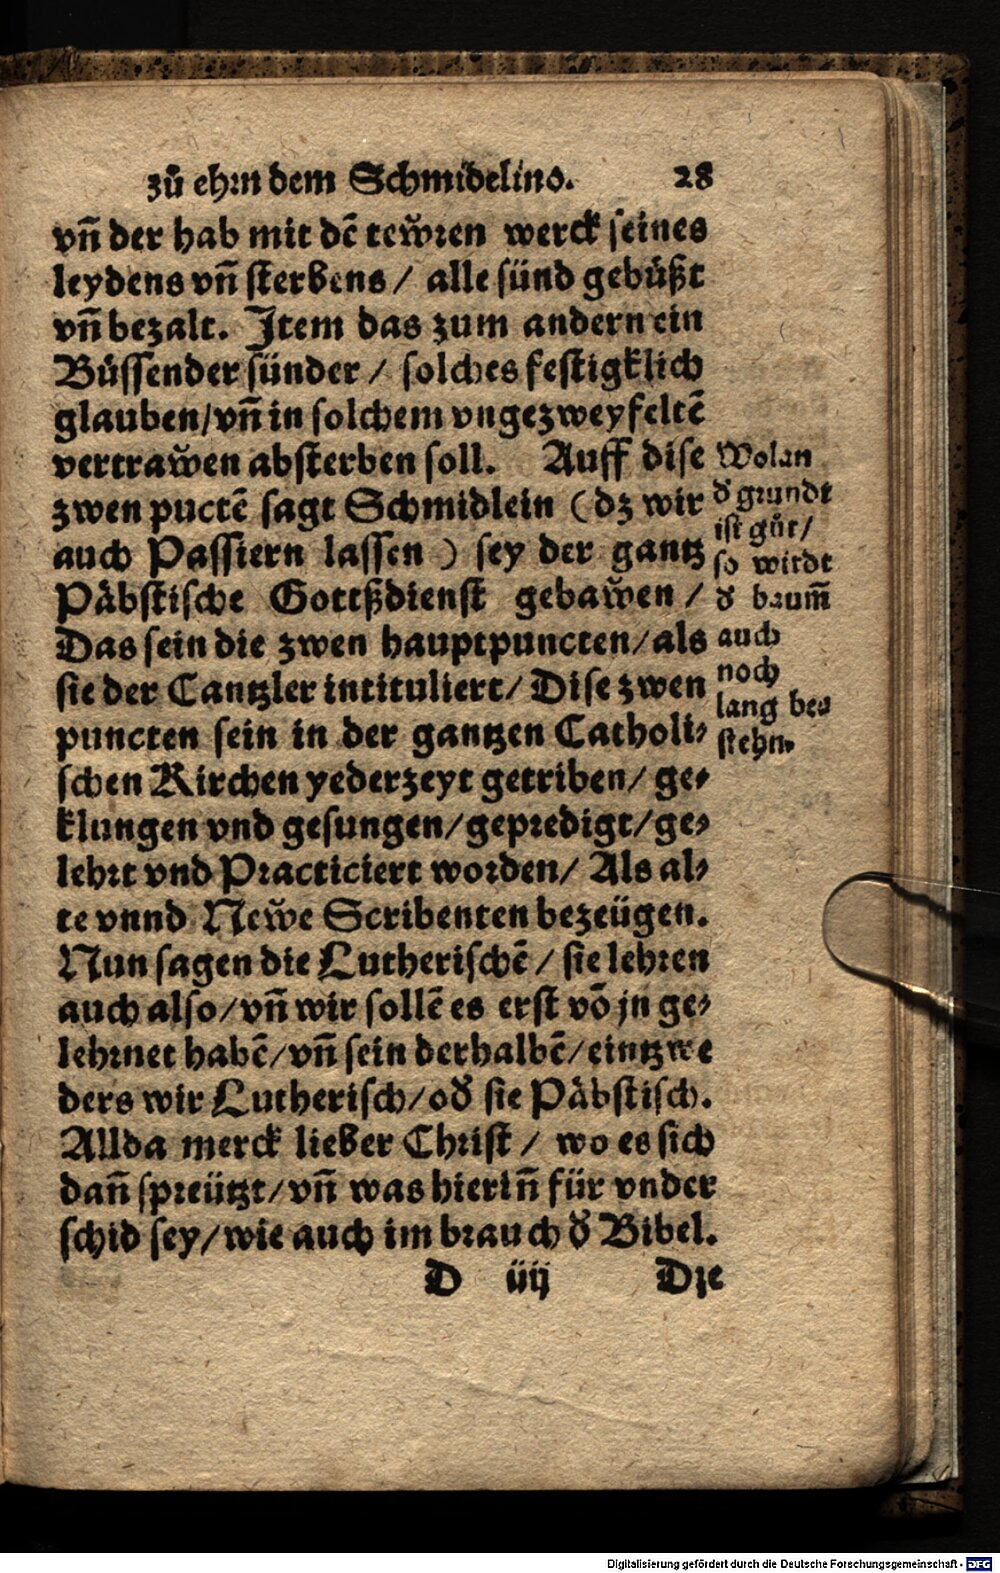 zů ehrn dem Schmidelino. 28
vñ der hab mit dẽ tewͦren werck seines
leydens vñ sterbens / alle sünd gebůßt
vñ bezalt. Item das zum andern ein
Büssender sünder / solches festigklich
glauben/vñ in solchem vngezweyfeltẽ
vertrawͦen absterben soll. Auff dise
zwen puctẽ sagt Schmidlein (dz wir
auch Passiern lassen) sey der gantz
Päbstische Gottßdienst gebawͦen /
Das sein die zwen hauptpuncten/als
sie der Cantzler intituliert/ Dise zwen
puncten sein in der gantzen Catholi-
schen Kirchen yederzeyt getriben/ ge-
klungen vnd gesungen/gepredigt/ge-
lehrt vnd Practiciert worden/ Als al-
te vnnd Newͦe Scribenten bezeügen.
Nun sagen die Lutherischẽ / sie lehren
auch also/vñ wir sollẽ es erst võ jn ge-
lehrnet habẽ/vñ sein derhalbẽ/eintzwe
ders wir Lutherisch/oď sie Päbstisch.
Allda merck lieber Christ / wo es sich
dañ spreützt/vñ was hieriñ für vnder
schid sey/wie auch im brauch ď Bibel.
D iiij Die
Wolan
ď grundt
ist gůt/
so wirdt
ď baum̃
auch
noch
lang be-
stehn.
Digitalisierung gefördert durch die Deutsche Forschungsgemeinschaft - DFG